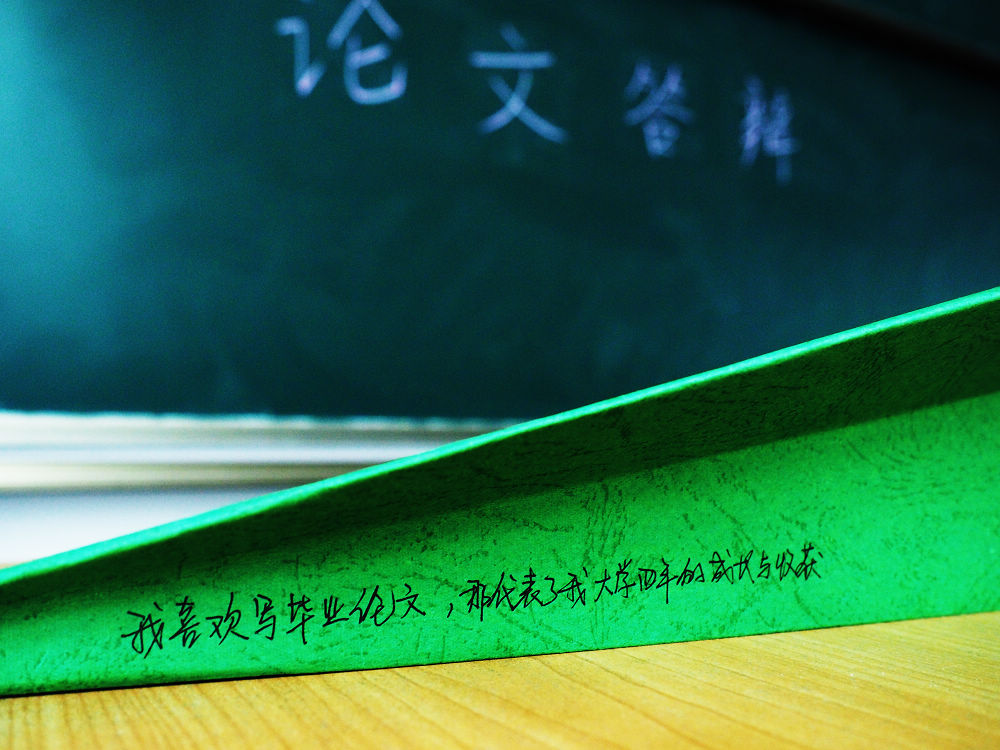 论文答辩
我喜欢写毕业论文，那代表了我大学四年的成长与收获